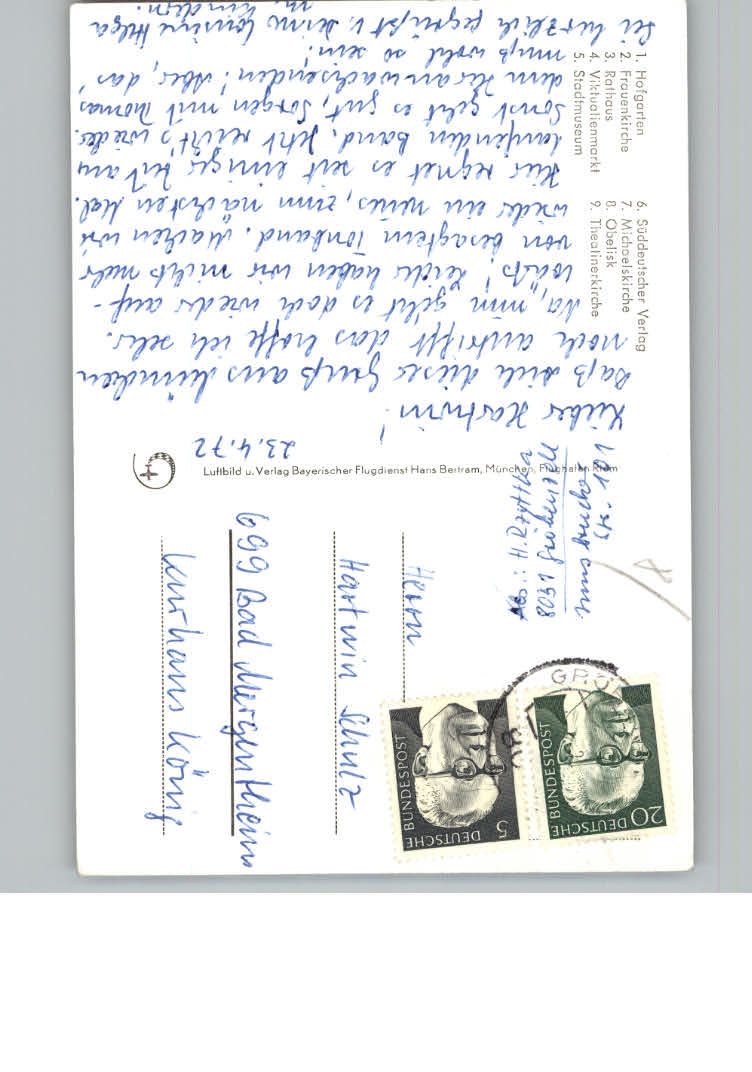 1. Hofgarten
2. Frauenkirche
3. Rathaus
4. Viktualienmarkt
5. Stadtmuseum
6. Süddeutscher Verlag
7. Michaelskirche
8. Obelisk
9. Theatinerkirche
23.4.72
Lieber Hartwin!
Daß dich dieser Gruß aus München
noch antrifft das hoffe ich sehr.
Na, nun geht es doch wieder auf-
wärts! Leider haben wir nichts mehr
von besagtem Tonband. Machen wir
wieder ein neues, zum nächsten Mal.
Hier regnet es seit einiger Zeit am
laufenden Band. Jetzt reicht's wieder.
Sonst geht es gut, Sorgen mit Thomas
dem Heranwachsenden! Aber, das
muß wohl so sein!
Sei herzlich gegrüßt v. Deiner Cousine Helga
m. Kindern.
Luftbild u. Verlag Bayerischer Flugdienst Hans Bertram, München, Flughafen Riem
Abs.: H.
8031 Gröbenzell
8
Herrn
Hartwin Schulz
699 Bad Mergentheim
Kurhaus König
DEUTSCHE BUNDESPOST
5
DEUTSCHE BUNDESPOST
20